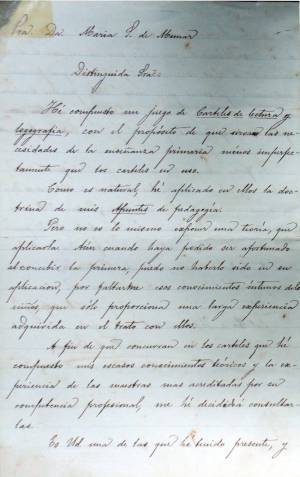 Sra. Da. Maria S. de Munar
Distinguida Sra:
Hé compuesto un juego de Carteles de lectura y
legografia, con el propósito de que sirvan las ne-
cesidades de la enseñanza primaria menos imperfec-
tamente que los carteles en uso.
Como es natural, hé aplicado en ellos la doc-
trina de mis Apuntes de pedagogía.
Pero no es lo mismo exponer una teoría, que
aplicarla. Aún cuando haya podido ser afortunado
al concebir la primera, puedo no haberlo sido en su
aplicacion, por faltarme esos conocimientos íntimos de los
niños, que sólo proporciona una larga experiencia
adquirida en el trato con ellos.
A fin de que concurran en los carteles que hé
compuesto mis escasos conocimientos técnicos y la ex-
periencia de las maestras mas acreditadas por su
competencia profesional, me hé decidido á consultar-
las.
Es Ud. una de las que hé tenido presente, y